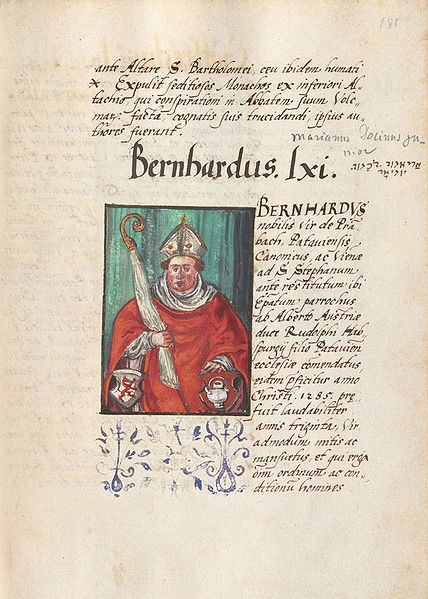 181
ante Altare S. Bartholomei, ceu ibidem humati
x Expulit seditiosos Monachos ex inferiori Al-
tachio, qui conspirationi in Abbatem suum Vole,
mar: factæ, cognatis suis trucidandi, ipsius au,
thores fuerant.
marianus Ju-
nior
Bernhardus. lxi.
BERNHARDVS
nobilis Vir de Prā
bach, Pataviensis
Canonicus, ac Vienæ
ad S. Stephanum
ante restitutum ibi
Epatum parrochus
ab Alberto Austriæ
duce Rudolphi Hab
spurgij filio Patavien
ecclesiæ comendatus
eidem pficitur anno
Christi. 1285. prę
fuit laudabiliter
annis triginta. Vir
admodum mitis ac
mansuetus, et qui erga
oīm ordinum ac con-
ditionū homines